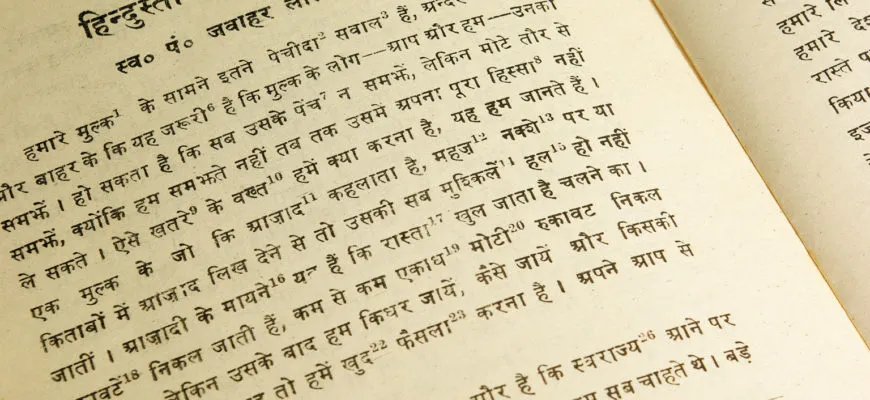 हिन्दुस्ता
स्व० पं० जवाहर ला
हमारे मुल्क¹ के सामने इतने पेचीदा² सवाल³ हैं, अन्दर
और बाहर के कि यह ज़रूरी⁶ है कि मुल्क के लोग—आप और हम—उनको
समझें । हो सकता है कि सब उसके पेंच⁷ न समझें, लेकिन मोटे तौर से
समझें, क्योंकि हम समझते नहीं तब तक उसमें अपना पूरा हिस्सा⁸ नहीं
ले सकते । ऐसे खतरे⁹ के वख्त¹⁰ हमें क्या करना है, यह हम जानते हैं ।
एक मुल्क के जो कि आज़ाद¹¹ कहलाता है, महज़¹² नक्शे¹³ पर या
किताबों में आज़ाद लिख देने से तो उसकी सब मुश्किलें¹⁴ हल¹⁵ हो नहीं
जातीं । आज़ादी के मायने¹⁶ यह हैं कि रास्ता¹⁷ खुल जाता है चलने का ।
कावटें¹⁸ निकल जाती हैं, कम से कम एकाध¹⁹ मोटी²⁰ रुकावट निकल
लेकिन उसके बाद हम किधर जायें, कैसे जायें और किसकी
तो हमें खुद²² फैसला²³ करना है । अपने आप से
और है कि स्वराज्य²⁶ आने पर
सब चाहते थे । बड़े
हमारे लि
हमारे देश
रास्ते
किया